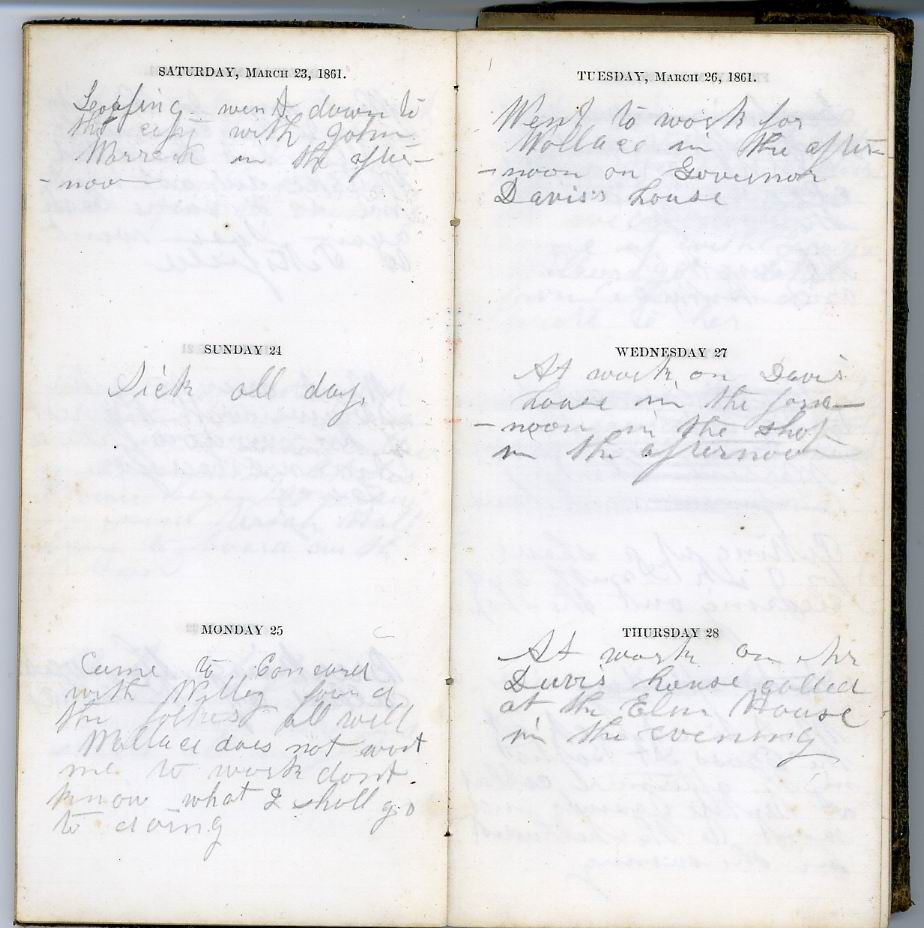 SATURDAY, MARCH 23, 1861.
Loafing went down to
the city with John
in the after-
-noon
SUNDAY 24
Sick all day,
MONDAY 25
Came to Concord
with Willey found
the folkes all well
Wallace does not want
me to work dont
know what I shall go
to doing
TUESDAY, MARCH 26, 1861.
Went to work for
Wallace in the after-
-noon on Governor
Davis's house
WEDNESDAY 27
At work on Davis
house in the fore-
-noon in the shop
in the afternoon
THURSDAY 28
At work on Mr
Davis house called
at the Elm House
in the evening